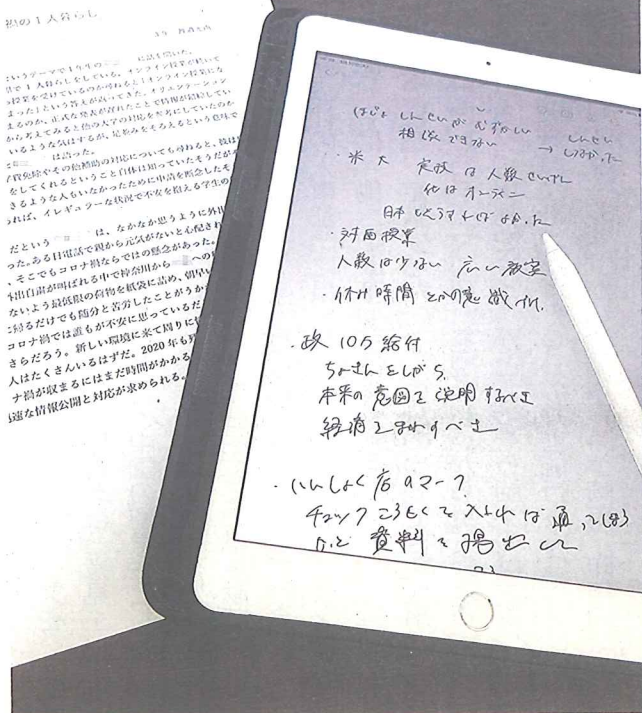 禍の1人暮らし
いうテーマで1年生の
に話を聞いた。
で1人暮らしをしている。オンライン授業が続いて
授業を受けているのか尋ねると「オンライン授業にな
まった」という答えが返ってきた。オリエンテーション
まるのか、正式な発表が遅れたことで情報が錯綜してい
から考えてみると他の大学の対応を参考にしていたのか
いるような気はするが、足並みをそろえるという意味で
は語った。
学費免除やその他補助の対応についても尋ねると、彼は
をしてくれるということ自体は知っていたそうだが
きるような人もいなかったために申請を断念したそ
れば、イレギュラーな状況で不安を抱える学生の
だという
は、なかなか思うように外出
った。ある日電話で親から元気がないと心配され
、そこでもコロナ禍ならではの懸念があった。
出自粛が叫ばれる中で神奈川から
への
ないよう最低限の荷物を紙袋に詰め、朝早い
に帰るだけでも随分と苦労したことがうか
コロナ禍では誰もが不安に思っているだ
さらだろう。新しい環境に来て周りに
人はたくさんいるはずだ。2020年も
ナ禍が収まるにはまだ時間がかかる
速な情報公開と対応が求められる。
しんせいが むずかしい
相談できない → しんせい
しなかった
・米大 実技は人数せいげん
他はオンライン
日本
・対面授業
人数は少ない 広い教室
・休み時間とかの意識
・政 10万給付
ちょきんをしがち
本来の意図を説明するべき
経済をまわすべき
・いんしょく店のマーク
チェックこうもくを入れれば通ってしまう
資料を提出